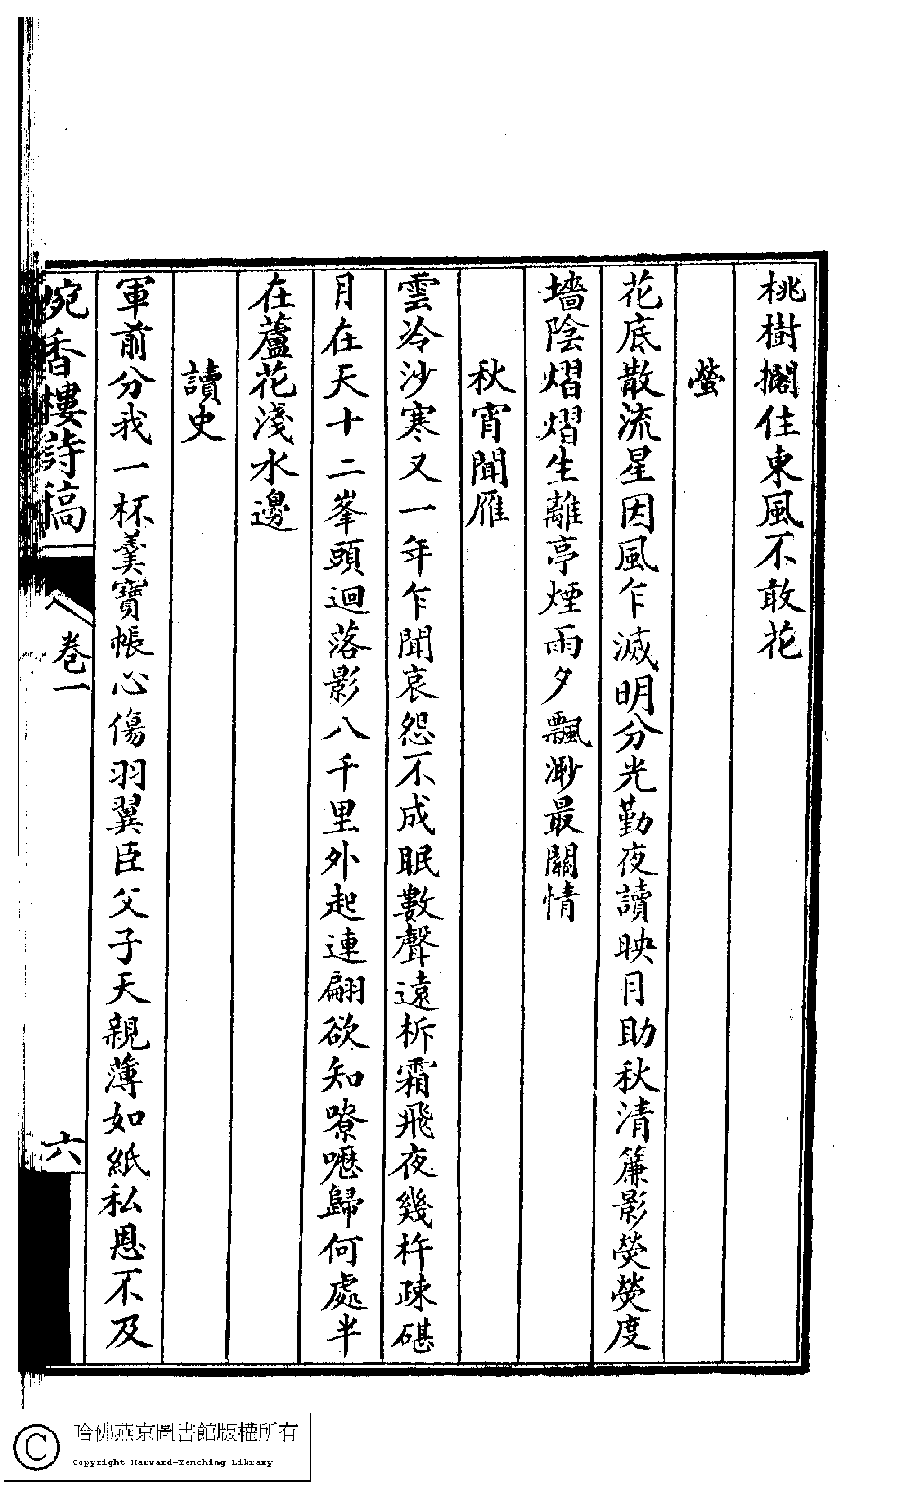 桃樹攔住東風不敢花
螢
花底散流星因風乍滅明分光勤夜讀映月助秋清簾影熒熒度
墻陰熠熠生離亭煙雨夕飄渺最關情
秋宵聞雁
雲冷沙寒又一年乍聞哀怨不成眠數聲遠柝霜飛夜幾杵疎碪
月在天十二峯頭迴落影八千里外起連翩欲知嘹嚦歸何處半
在蘆花淺水邊
讀史
軍前分我一杯羹寶帳心傷羽翼臣父子天親薄如紙私恩不及
婉香樓詩稿
卷一
六
哈佛燕京圖書館版權所有
Copyright Harvard-Yenching Library